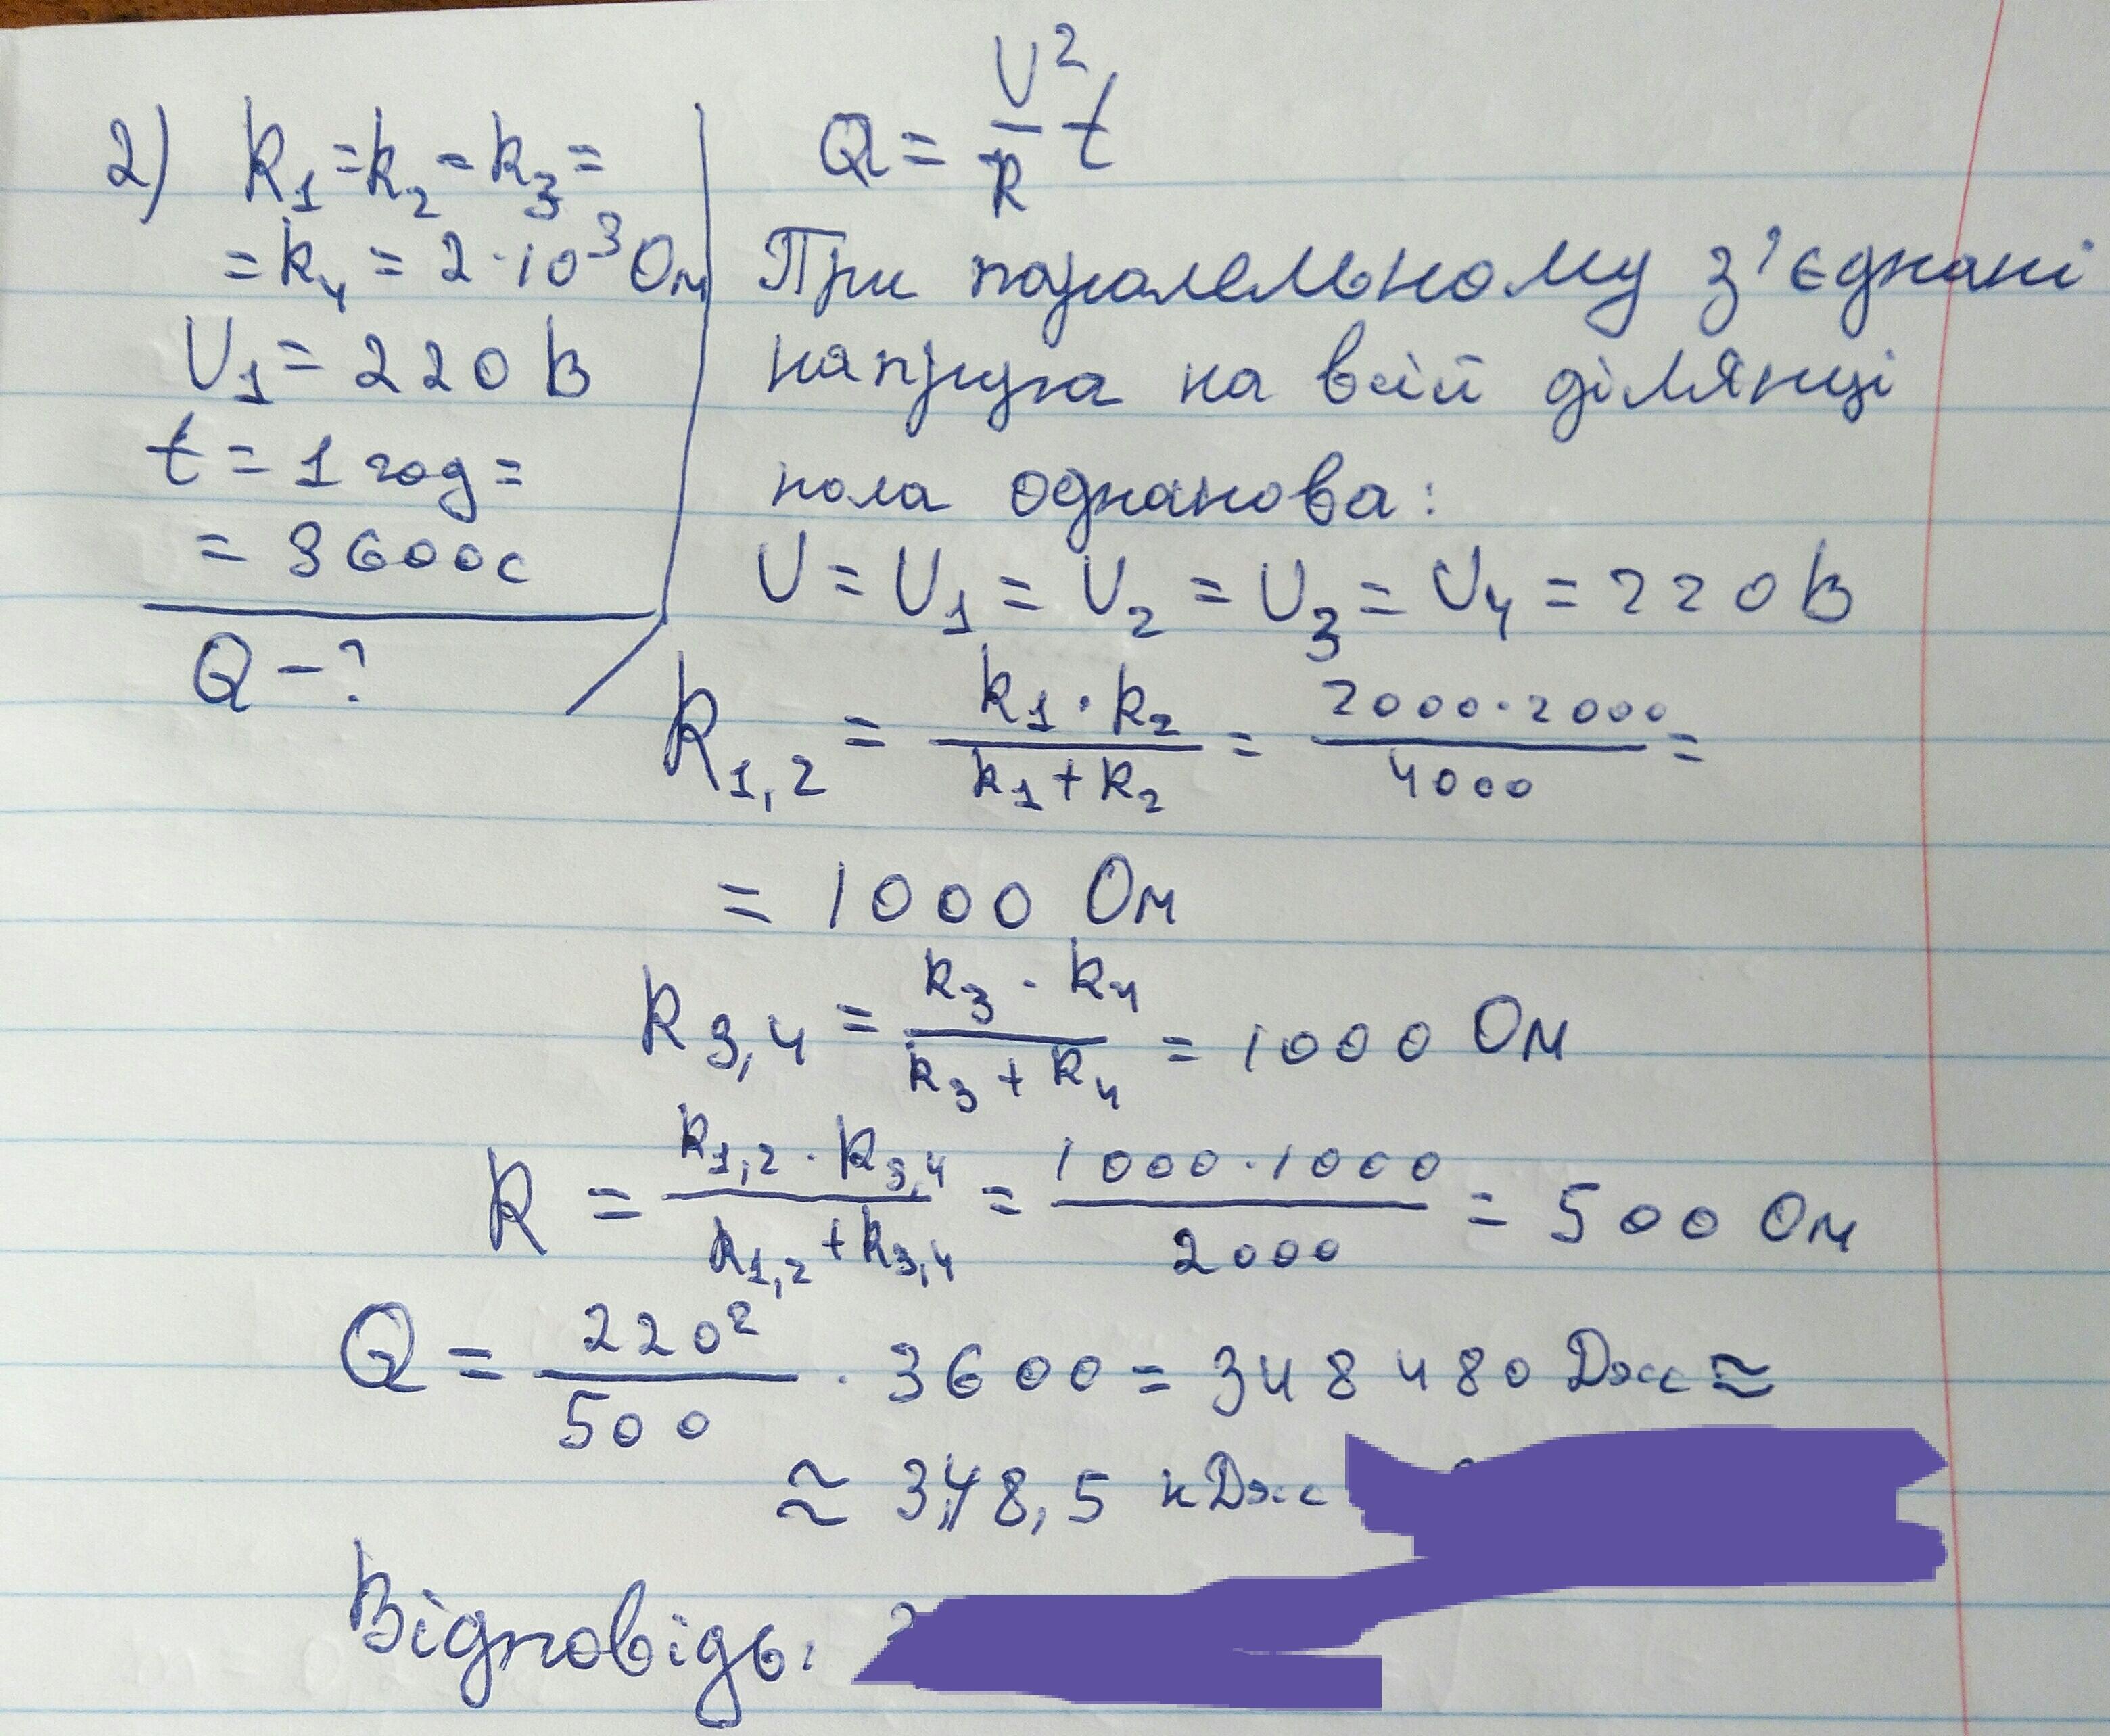 2) R₁=R₂=R₃=
=R₄ = 2·10³ Ом
U₁ = 220 В
t = 1 год =
= 3600с
Q - ?
Q = U²/R t
При паралельному з'єднані
напруга на всій ділянці
кола однакова:
U = U₁ = U₂ = U₃ = U₄ = 220 В
R₁,₂ = R₁·R₂/R₁+R₂ = 2000·2000/4000 =
= 1000 Ом
R₃,₄ = R₃·R₄/R₃+R₄ = 1000 Ом
R = R₁,₂·R₃,₄/R₁,₂+R₃,₄ = 1000·1000/2000 = 500 Ом
Q = 220²/500 · 3600 = 348 480 Дж ≈
≈ 348,5 кДж
Відповідь: